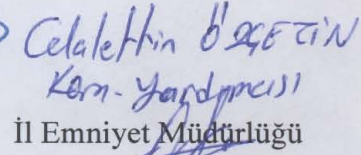 Celalettin ÖZÇETİN
Kom. Yardımcısı
İl Emniyet Müdürlüğü